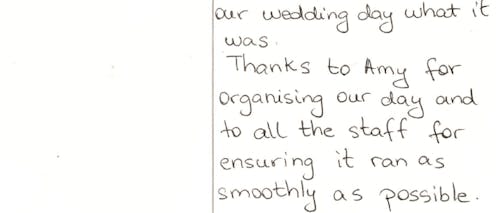 our wedding day what it
was.
Thanks to Amy for
organising our day and
to all the staff for
ensuring it ran as
smoothly as possible.